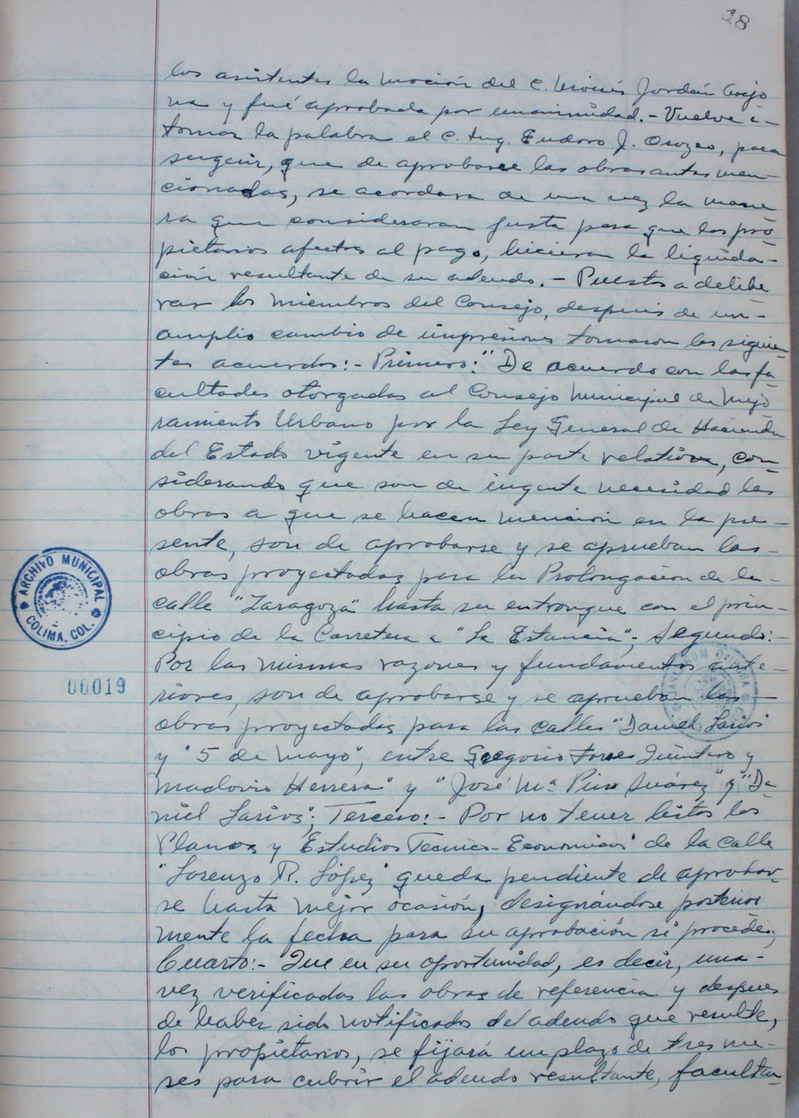 18
los asistentes la moción del C. Moisés Jordán Arejo
na y fué aprobada por unanimidad.- Vuelve a
tomar la palabra el C. Ing. Eudoro J. Orozco, para
sugerir, que de aprobarse las obras antes men-
cionadas, se acordara de una vez la mane
ra que consideraran justa para que los pro
pietarios afectos al pago, hicieran la liquida-
ción resultante de su adeudo.- Puestos a delibe
rar los miembros del Consejo, después de un-
amplio cambio de impresiones tomaron los siguien-
tes acuerdos:- Primero:" De acuerdo con las fa
cultades otorgadas al Consejo Municipal de Mejo
ramiento Urbano por la Ley General de Hacienda
del Estado vigente en su parte relativa, con-
siderando que son de ingente necesidad las
obras a que se hacen mención en la pre-
sente, son de aprobarse y se aprueban las-
obras proyectadas para la Prolongación de la-
calle "Zaragoza" hasta su entronque con el prin-
cipio de la Carretera a "La Estancia"; Segundo:-
Por las mismas razones y fundamentos ante-
riores, son de aprobarse y se aprueban las-
obras proyectadas para las calles "Daniel Larios"
y "5 de Mayo", entre Gregorio Torres Quintero y
Maclovio Herrera" y "José Ma Pino Suárez" y "Da-
niel Larios"; Tercero:- Por no tener listos los
Planos y Estudios Tecnico-Economicos de la calle
"Lorenzo R. López" queda pendiente de aprobar-
se hasta mejor ocasión, designándose posterior
mente la fecha para su aprobación si procede;
Cuarto:- Que en su oportunidad, es decir, una-
vez verificadas las obras de referencia y despues
de haber sido notificados del adeudo que resulte,
los propietarios, se fijará un plazo de tres me-
ses para cubrir el adeudo resultante, facultan-
ARCHIVO MUNICIPAL
COLIMA, COL.
00019